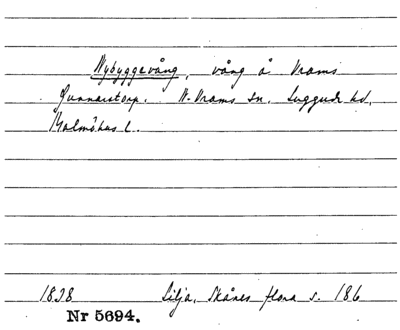 Nybyggevång, vång å Vrams
Gunnarstorp. N. Vrams sn. Luggude hd.
Malmöhus l.
1838 Lilja, Skånes flora s. 186
Nr 5694.